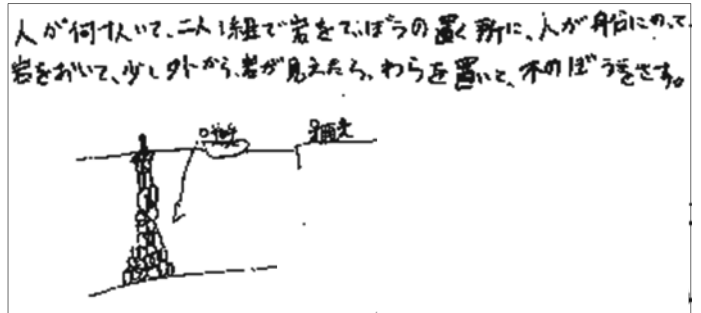 人が何十人いて、二人1組で岩をていぼうの置く所に、人が船にのって
岩をおいて、少し外から、岩が見えたら、わらを置いて、木のぼうをさす。